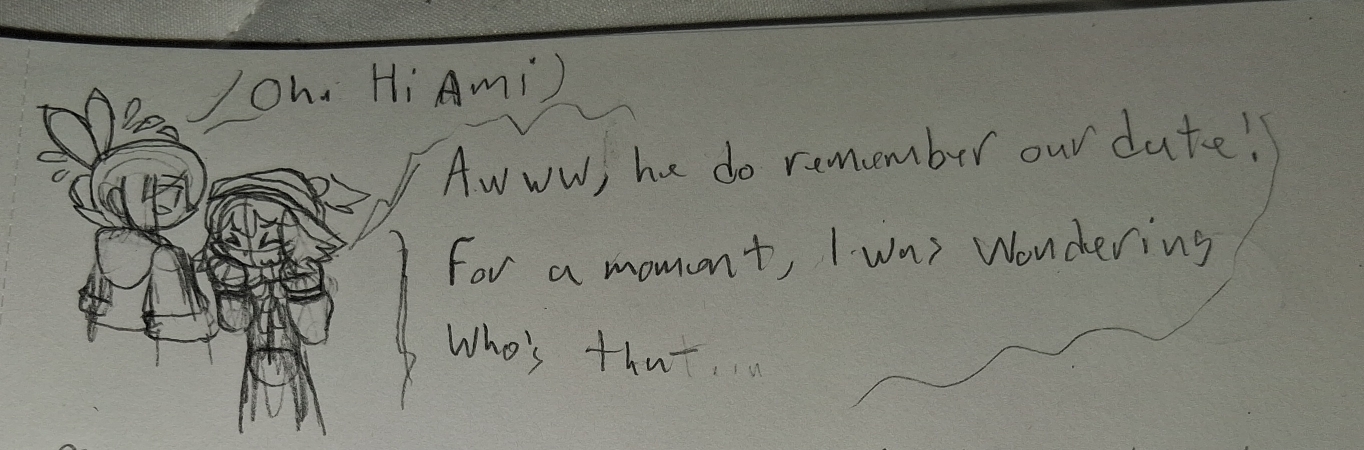 Oh. Hi Ami
Awww, he do remember our date!
For a moment, I was wondering
Who's that...